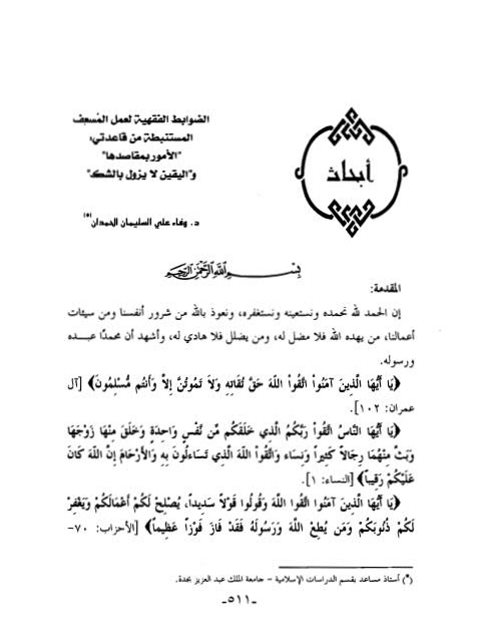 أبحاث
الضوابط الفقهية لعمل المُسعِف
المستنبطة من قاعدتي:
"الأمور بمقاصدها"
و"اليقين لا يزول بالشك"
د. وفاء علي السليمان الحمدان(*)
بِسْمِ اللَّهِ الرَّحْمَنِ الرَّحِيمِ
المقدمة:
إن الحمد لله نحمده ونستعينه ونستغفره، ونعوذ بالله من شرور أنفسنا ومن سيئات
أعمالنا، من يهده الله فلا مضل له، ومن يضلل فلا هادي له، وأشهد أن محمدًا عبده
ورسوله.
﴿يَا أَيُّهَا الَّذِينَ آمَنُوا اتَّقُواْ اللّهَ حَقَّ تُقَاتِهِ وَلاَ تَمُوتُنَّ إِلاَّ وَأَنتُم مُّسْلِمُونَ﴾ [آل
عمران: ١٠٢].
﴿يَا أَيُّهَا النَّاسُ اتَّقُواْ رَبَّكُمُ الَّذِي خَلَقَكُم مِّن نَّفْسٍ وَاحِدَةٍ وَخَلَقَ مِنْهَا زَوْجَهَا
وَبَثَّ مِنْهُمَا رِجَالاً كَثِيراً وَنِسَاء وَاتَّقُواْ اللّهَ الَّذِي تَسَاءلُونَ بِهِ وَالأَرْحَامَ إِنَّ اللّهَ كَانَ
عَلَيْكُمْ رَقِيباً﴾ [النساء: ١].
﴿يَا أَيُّهَا الَّذِينَ آمَنُوا اتَّقُوا اللَّهَ وَقُولُوا قَوْلاً سَدِيداً، يُصْلِحْ لَكُمْ أَعْمَالَكُمْ وَيَغْفِرْ
لَكُمْ ذُنُوبَكُمْ وَمَن يُطِعْ اللَّهَ وَرَسُولَهُ فَقَدْ فَازَ فَوْزاً عَظِيماً﴾ [الأحزاب: ٧٠-
(*) أستاذ مساعد بقسم الدراسات الإسلامية - جامعة الملك عبد العزيز بجدة.
-٥١١-